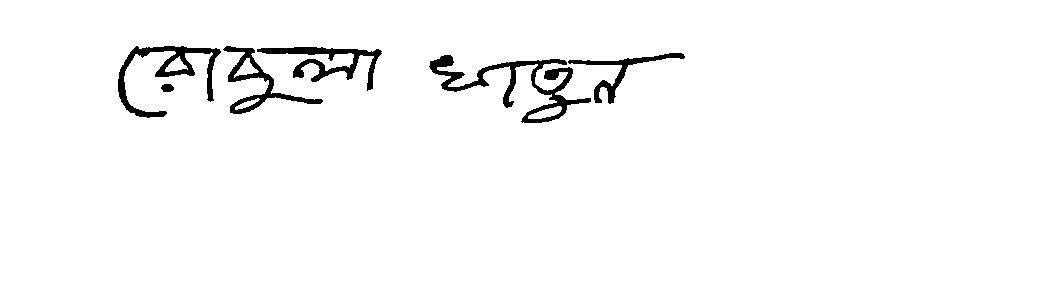 রোকুলা খাতুন